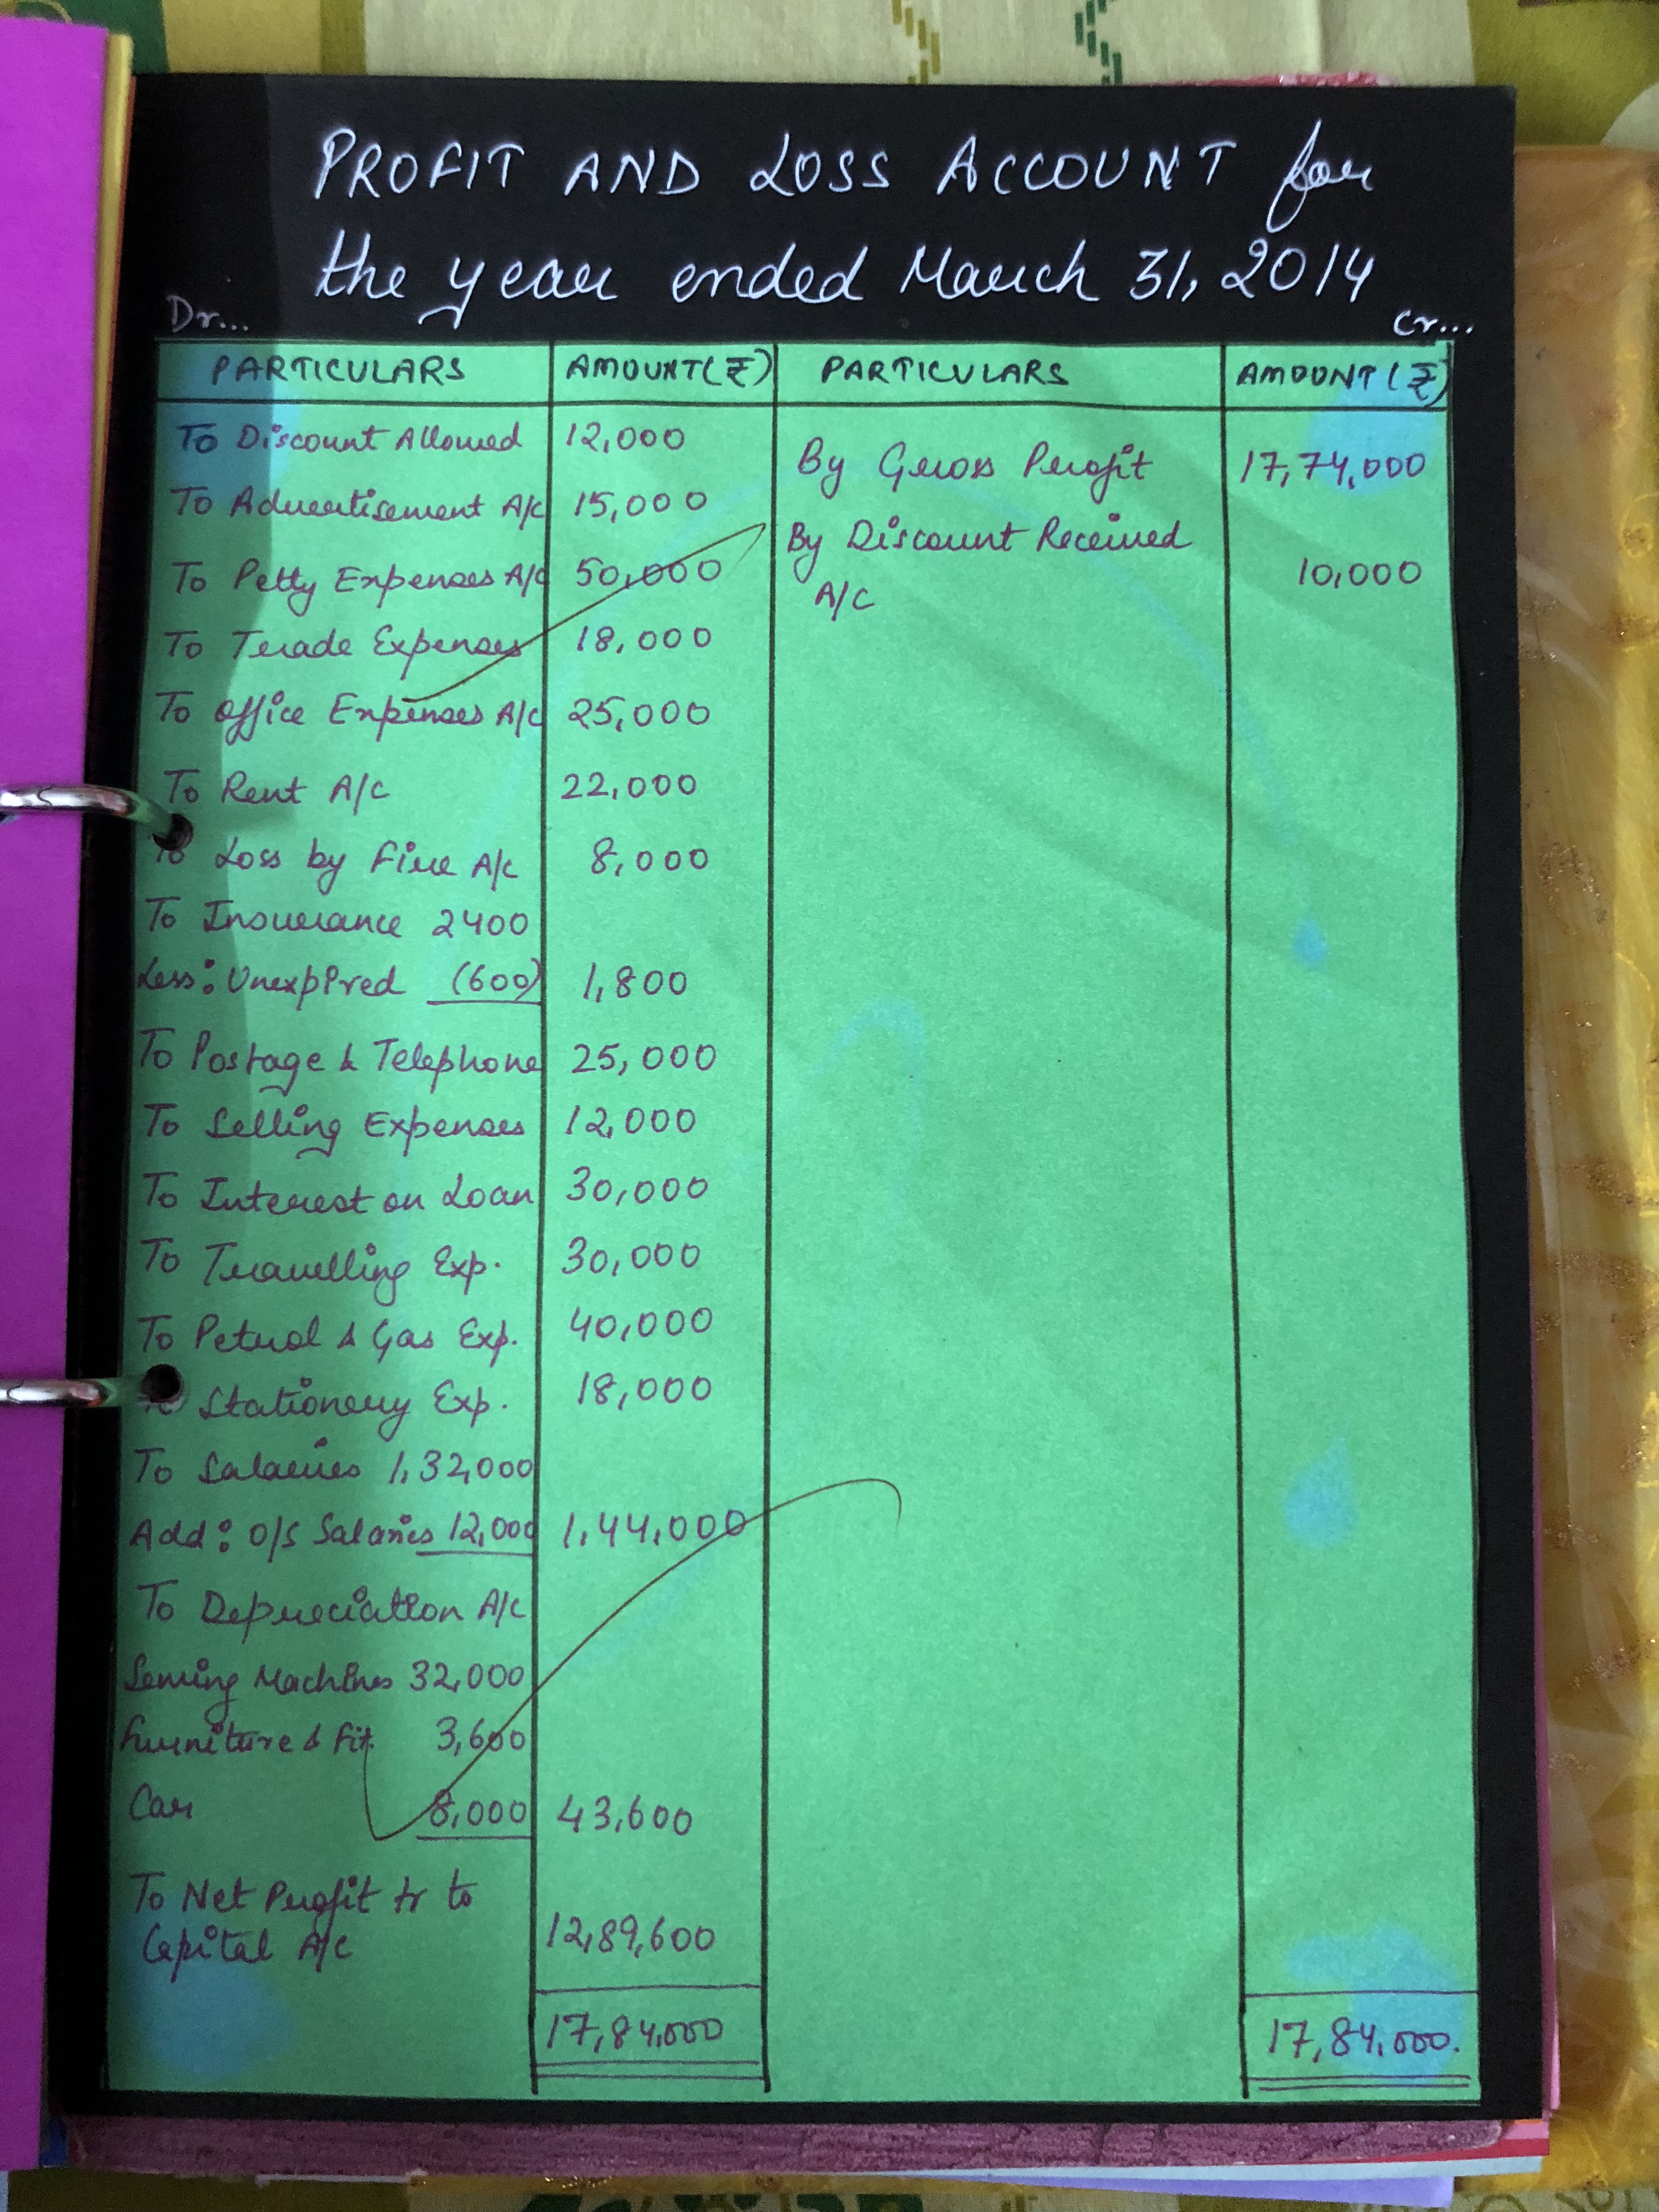 PROFIT AND LOSS ACCOUNT for
the year ended March 31, 2014
Dr... Cr...
PARTICULARS AMOUNT(₹) PARTICULARS AMOUNT(₹)
To Discount Allowed 12,000 By Gross Profit 17,74,000
To Advertisement A/c 15,000 By Discount Received
To Petty Expenses A/c 50,000 A/C 10,000
To Trade Expenses 18,000
To Office Expenses A/c 25,000
To Rent A/C 22,000
To Loss by Fire A/c 8,000
To Insurance 2400
Less: Unexpired (600) 1,800
To Postage & Telephone 25,000
To Selling Expenses 12,000
To Interest on Loan 30,000
To Travelling Exp. 30,000
To Petrol & Gas Exp. 40,000
To Stationery Exp. 18,000
To Salaries 1,32,000
Add: O/S Salaries 12,000 1,44,000
To Depreciation A/c
Sewing Machines 32,000
Furniture & Fit. 3,600
Car 8,000 43,600
To Net Profit tr to
Capital A/c 12,89,600
17,84,000 17,84,000.